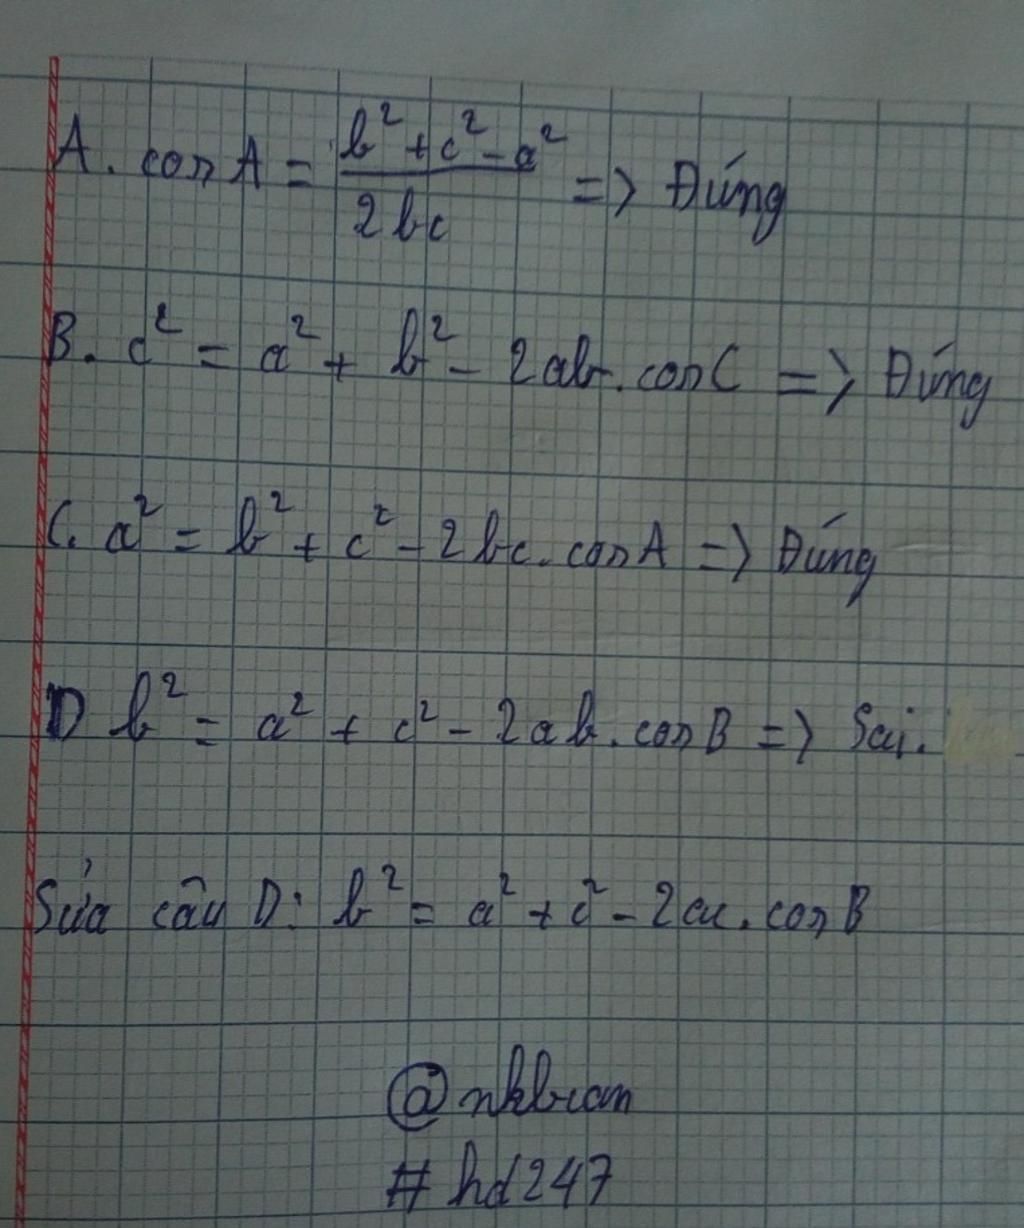 A. cosA = b² + c² - a² / 2bc => Đúng
B. c² = a² + b² - 2ab.cosC => Đúng
C. a² = b² + c² - 2bc.cosA => Đúng
D b² = a² + c² - 2ab.cosB => Sai.
Sửa câu D: b² = a² + c² - 2ac.cosB
@nkbran
#hd247